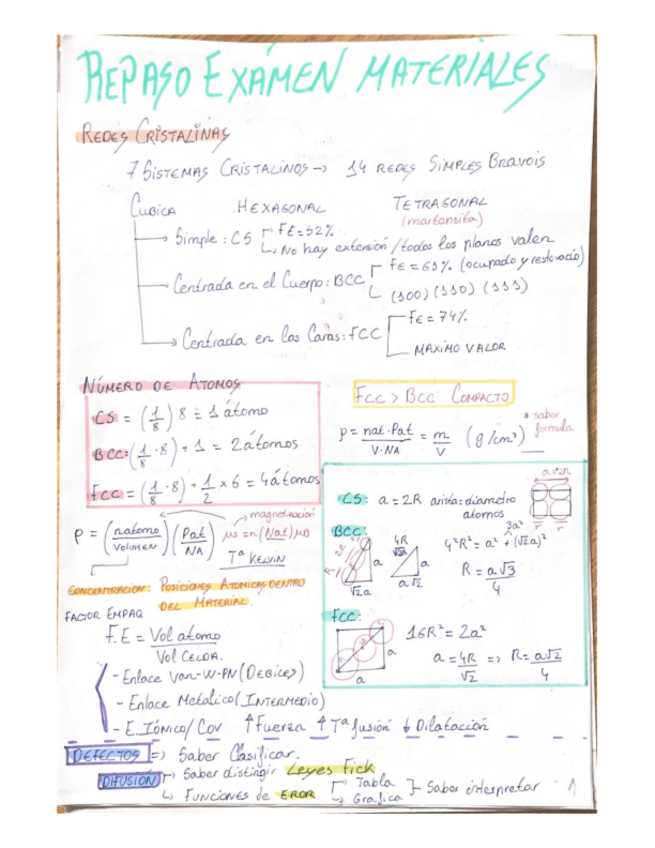 REPASO EXÁMEN MATERIALES
REDES CRISTALINAS
7 SISTEMAS CRISTALINOS → 14 REDES SIMPLES BRAVOIS
CUBICA HEXAGONAL TETRAGONAL
(martensita)
→ Simple: CS FE=52%
↳ No hay extensión / todos los planos valen
→ Centrada en el Cuerpo: BCC FE=69% (ocupado y resto vacío)
(100) (110) (111)
→ Centrada en las Caras: FCC FE=74%
MAXIMO VALOR
NÚMERO DE ATOMOS
CS = (1/8) 8 = 1 átomo
BCC = (1/8 · 8) + 1 = 2 átomos
FCC = (1/8 · 8) + 1/2 × 6 = 4 átomos
FCC > BCC COMPACTO
ρ = nat · Pat / V · NA = m / V (g/cm³)
* saber formula
ρ = (natomo / VOLUMEN) (Pat / NA)
→ magnetización
μs = n (Nat) μB
Tª KELVIN
CONCENTRACION: POSICIONES ATOMICAS DENTRO
DEL MATERIAL.
FACTOR EMPAQ
F.E = Vol atomo / Vol CELDA.
- Enlace Van-W-PN (DEBILES)
- Enlace Metalico (INTERMEDIO)
- E. Iónico/Cov ↑ Fuerza ↑ Tª fusión ↓ Dilatación
CS: a = 2R arista = diametro
atomos
a = 2R
r r
BCC:
R 2R R
a
√2a
4R
√3a
a
a√2
3a²
4²R² = a² + (√2a)²
R = a√3 / 4
FCC:
a
a
16R² = 2a²
a = 4R / √2 => R = a√2 / 4
DEFECTOS => Saber Clasificar.
DIFUSIÓN → Saber distingir Leyes Fick
↳ Funciones de ERROR → Tabla
→ Grafica } Saber interpretar
1